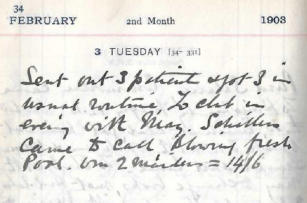 34
FEBRUARY 2nd Month 1903
3 TUESDAY [34-331]
Sent out 3 patient 3 in
usual routine, To club in
evening with May. Schillers
came to call Blowing fresh
Pool. won 2 = 14/6